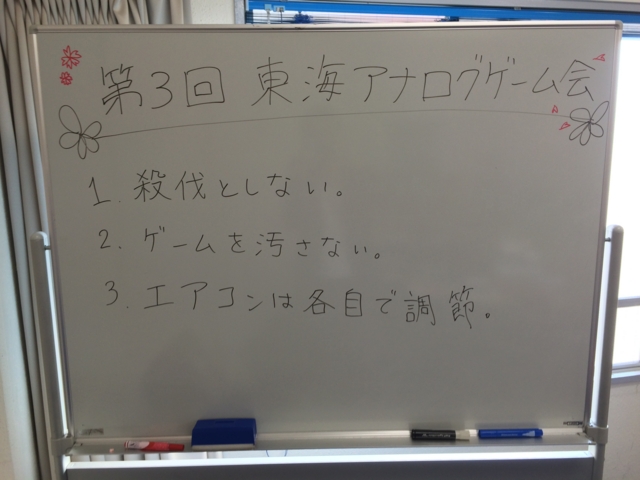 第3回 東海アナログゲーム会
1. 殺伐としない。
2. ゲームを汚さない。
3. エアコンは各自で調節。